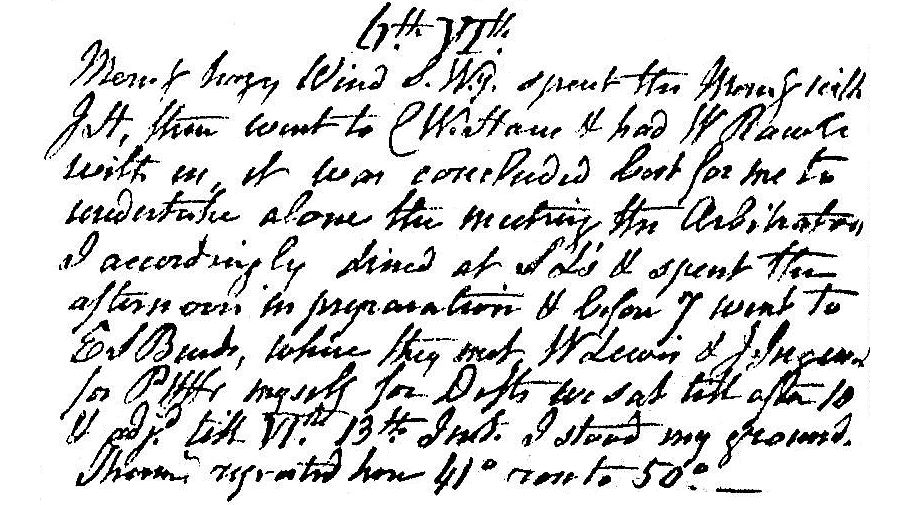 7th VIIth
Morng hazy Wind S. Wy. spent the Morng with
J H, then went to C Wistars & had W Rawle
with us, it was concluded best for me to
undertake alone the meeting the Arbitrators
I accordingly dined at S L's & spent the
afternoon in preparation & before 7 went to
E S Burds, where they met, W Lewis & J Ingersol
for Pltffs myself for Defts we sat till after 10
& adjd. till VIth. 13th Inst. I stood my ground.
Thermr reported here 41° rose to 50°. —